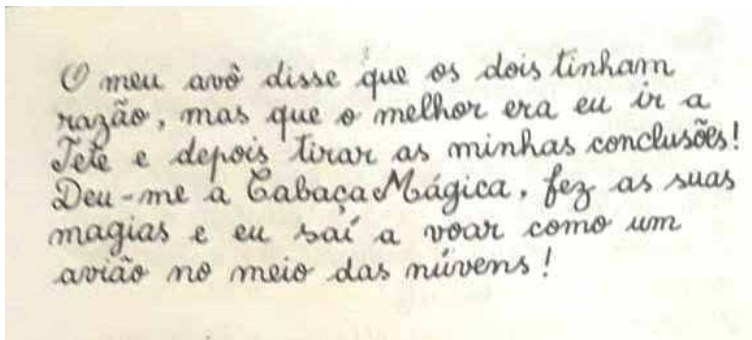 O meu avô disse que os dois tinham
razão, mas que o melhor era eu ir a
Tete e depois tirar as minhas conclusões!
Deu-me a Cabaça Mágica, fez as suas
magias e eu saí a voar como um
avião no meio das núvens!